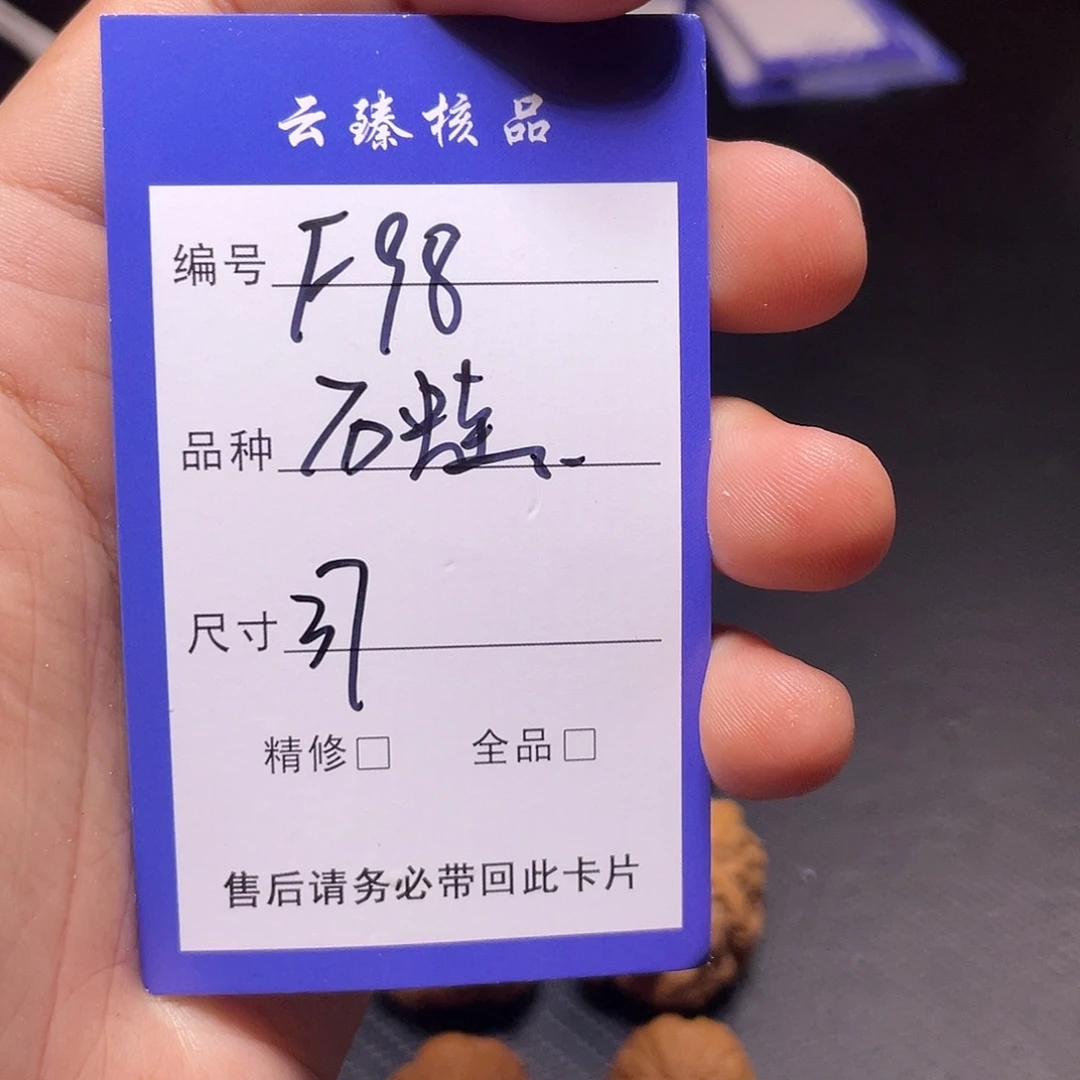 云臻核品
编号 F98
品种 石
尺寸 37
精修□ 全品□
售后请务必带回此卡片